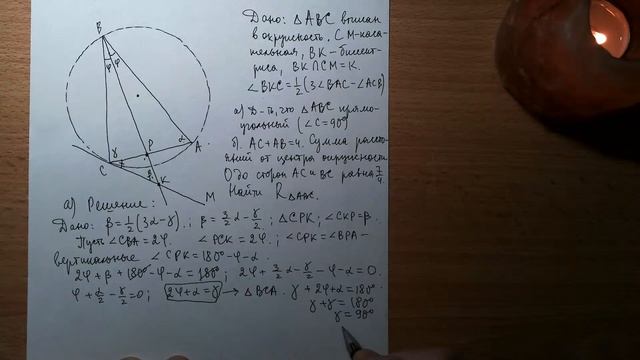 Дано: △ABC вписан
в окружность. CM-каса-
тельная, BK-биссект-
риса, BK∩CM=K.
∠BKC=½(3∠BAC-∠ACB)
а) Д-ть, что △ABC прямо-
угольный (∠C=90°)
б). AC+AB=4. Сумма рассто-
яний от центра окружности
O до сторон AC и BC равна 7/4.
Найти R△ABC.
B
φ φ
P
α
A
γ
C
β
K
M
а) Решение:
Дано: β=½(3α-γ).; β=3/2α-γ/2. ; △CPK; ∠CKP=β.
Пусть ∠CBA=2φ. ∠PCK=2φ. ; ∠CPK=∠BPA-
вертикальные ∠CPK=180°-φ-α
2φ+β+180°-φ-α=180°; 2φ+3/2α-γ/2-φ-α=0.
φ+α/2-γ/2=0; 2φ+α=γ → △BCA. γ+2φ+α=180°
γ+γ=180°
γ=90°